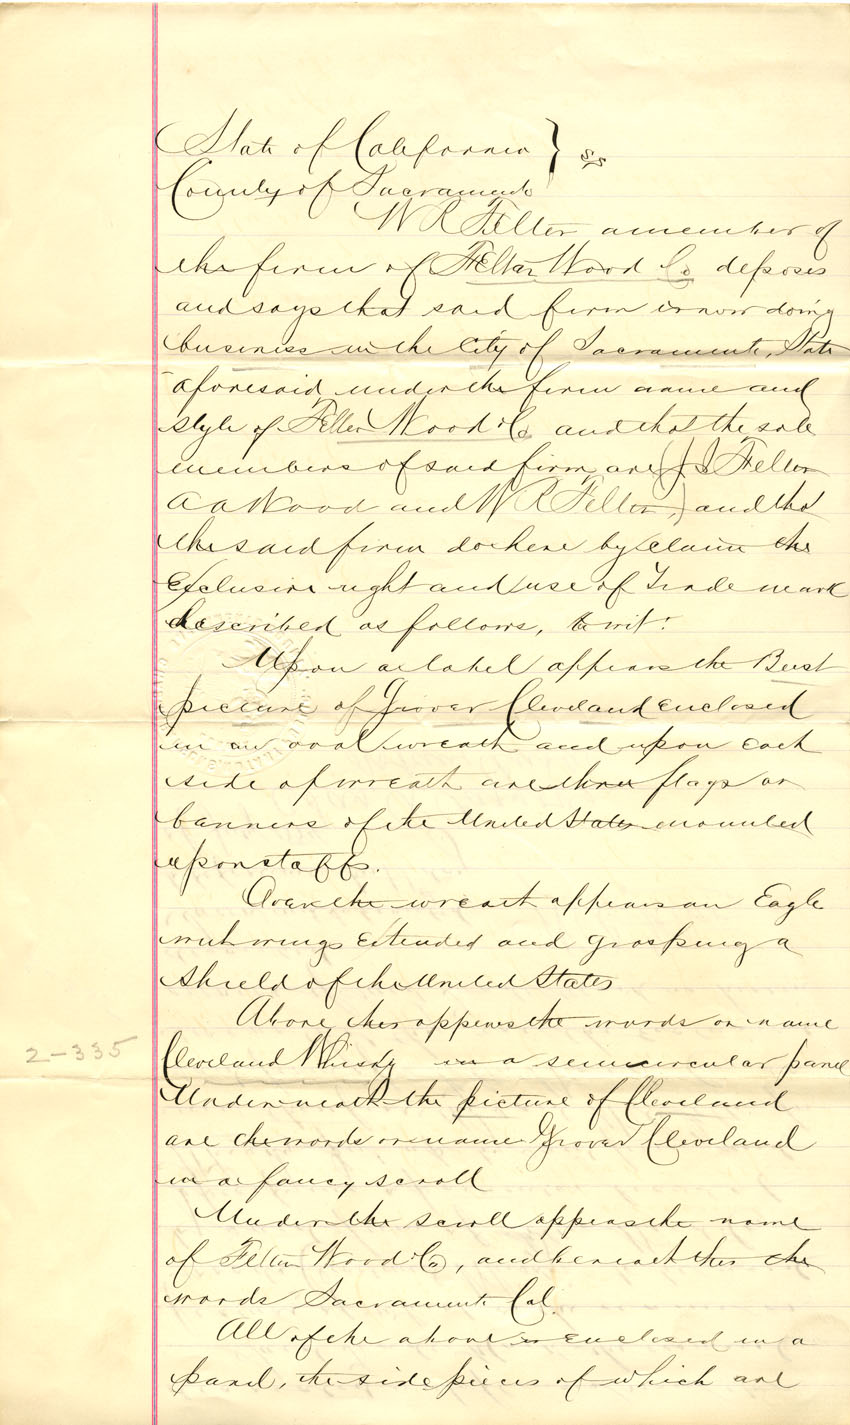 State of California } ss
County of Sacramento
W R Felter a member of
the firm of Felter, Wood & Co deposes
and says that said firm is now doing
business in the City of Sacramento, State
aforesaid, under the firm name and
style of Felter Wood & Co and that the sole
members of said firm are (J I Felter
A A Wood and W R Felter,) and that
the said firm do here by claim the
Exclusive right and use of Trade mark
described as follows, to wit:
Upon a label appears the Bust
picture of Grover Cleveland enclosed
in an oval wreath and upon each
side of wreath are three flags or
banners of the United States mounted
upon staffs.
Over the wreath appears an Eagle
with wings Extended and grasping a
shield of the United States
Above this appears the words or name
Cleveland Whisky in a semicircular panel
Underneath the picture of Cleveland
are the words or name Grover Cleveland
in a fancy scroll
Under the scroll appears the name
of Felter Wood & Co, and beneath this the
words Sacramento Cal.
All of the above is enclosed in a
panel, the side pieces of which are
2-335